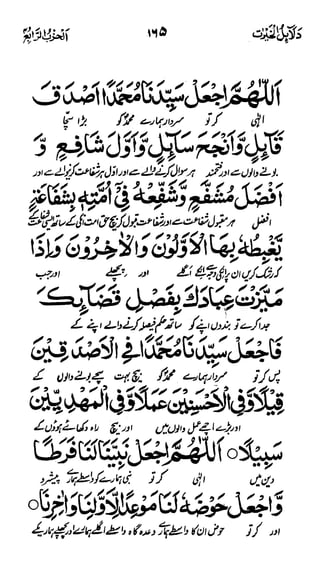 دَلَآئِلُ الْخَيْرَات ۱۶۵ اَلْحِزْبُ الرَّابِعُ
اَللّٰهُمَّ اجْعَلْ سَيِّدَنَا مُحَمَّدًا اَصْدَقَ
الٰہی کر تو سردار ہمارے محمدؐ کو بڑا سچا
قَآئِلٍ وَّاَنْجَحَ سَآئِلٍ وَّاَوَّلَ شَافِعٍ وَّ
بولنے والوں سے اور فتحمند ہر سوال کرنے والے سے اور اول ہر شفاعت کرنیوالے سے اور
اَفْضَلَ مُشَفَّعٍ وَّشَفِّعْهُ فِيْٓ اُمَّتِهٖ بِشَفَاعَةٍ
افضل ہر مقبول شفاعت سے اور شفاعت قبول کر بیچ حق امت انکی کے ساتھ
يَّغْبِطُهٗ بِهَا الْاَوَّلُوْنَ وَالْاٰخِرُوْنَ وَاِذَا
کہ رشک کریں ان پر اگلے اور پچھلے اور جب
مَيَّزْتَ عِبَادَكَ بِفَصْلِ قَضَآئِكَ
جدا کرے تو بندوں اپنے کو ساتھ حکم فیصلہ کرنے والے اپنے کے
فَاجْعَلْ سَيِّدَنَا مُحَمَّدًا فِي الْاَصْدَقِيْنَ
پس کر تو سردار ہمارے محمدؐ کو بیچ بہت سچے بولنے والوں کے
قِيْلًا وَّفِي الْاَحْسَنِيْنَ عَمَلًا وَّفِي الْمَهْدِيِّيْنَ
اور بڑے اچھے عمل والوں میں اور بیچ راہ دکھائے ہوؤں کے
سَبِيْلًا ○ اَللّٰهُمَّ اجْعَلْ نَبِيَّنَا لَنَا فَرَطًا
دین میں الٰہی کر تو نبی ہمارے کو واسطے ہمارے پیشرو
وَّاجْعَلْ حَوْضَهٗ لَنَا مَوْعِدًا لِّاَوَّلِنَا وَاٰخِرِنَا ○
اور کر تو حوض ان کا واسطے ہمارے وعدہ گاہ واسطے اگلے ہمارے اور پچھلے ہمارے کے